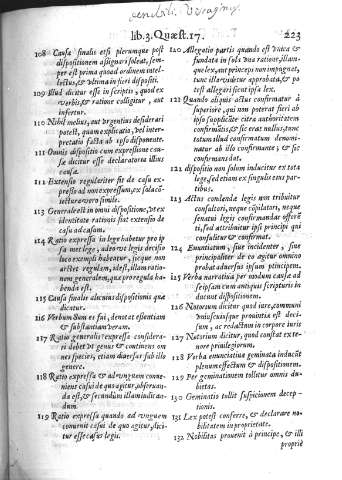 lib.3. Quæst. 17. 223
108 Causa finalis etsi plerumque post
dispositionem assignari soleat, sem-
per est prima quoad ordinem intel-
lectus, & ultima in fieri dispositi.
109 Illud dicitur esse in scriptis, quod ex
verbis, & ratione colligitur, aut
infertur.
110 Nihil melius, aut urgentius desiderari
potest, quam explicatio, vel inter-
pretatio facta ab ipso disponente.
111 Omnis dispositio cum expressione cau-
sæ dicitur esse declaratoria illius
causæ.
111 Extensio regulariter fit de casu ex-
presso ad non expressum, ex sola con-
iectura verosimile.
113 Generale est in omni dispositione, ut ex
identitate rationis fiat extensio de
casu ad casum.
114 Ratio expressa in lege habetur pro ip
sa met lege, adeo ut legis decisio
loco exempli habeatur, sicque non
arctet regulam, idest, illam ratio-
nem generalem, quæ pro regula ha-
benda est.
115 Causa finalis alicuius dispositionis quæ
dicatur.
116 Verbum Sum es fui, denotat essentiam
& substantiam veram.
117 Ratio generalis expressa considera-
ri debet ut genus & continens om
nes species, etiam diversas sub illo
genere.
118 Ratio expressa & adunguem conve-
niens casui de quo agitur, observan-
da est, & secundum illam iudican-
dum.
119 Ratio expressa quando ad unguem
convenit casui de quo agitur, dici-
tur esse casus legis.
120 Allegatio partis quando est unica &
fundata in sola una ratione, illam-
que lex, aut princeps non impugnet,
tunc illa regulariter approbata, & po
test allegari sicut ipsa lex.
121 Quando aliquis actus confirmatur à
superiore, qui non poterat fieri ab
ipso supplicante citra authoritatem
confirmatis, & sic erat nullus, tunc
totum illud confirmatum denomi-
natur ab illo confirmante, & sic
confirmans dat.
122 dispositio non solum inducitur ex tota
lege, sed etiam ex singulis eius par-
tibus.
123 Actus condendæ legis non tribuitur
consultori, neque cupidatori, neque
senatui legis confirmandæ offerē
ti, sed attribuitur ipsi principi qui
consulitur & confirmat.
124 Enuntiativa, sive incidenter, sive
principaliter de eo agitur omnino
probat adversus ipsum principem.
125 Verba narrativa per modum causæ ad
scripta cum antiquis scripturis in
ducunt dispositionem.
126 Notorium dicitur quod iure communi
uniuscuiusque provintiæ est deci-
sum, ac redactum in corpore iuris
127 Notorium dicitur, quod constat ex te-
nore privilegiorum.
128 Verba enunciativa geminata inducūt
plenum effectum & dispositionem.
129 Per geminationem tollitur omnis du-
bietas.
130 Geminatio tollit suspicionem decep-
tionis.
131 Lex potest conferre, & declarare no-
bilitatem in proprietate.
132 Nobilitas provenit à principe, & illi
propriè